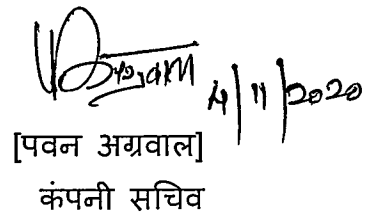 4/11/2020
[पवन अग्रवाल]
कंपनी सचिव